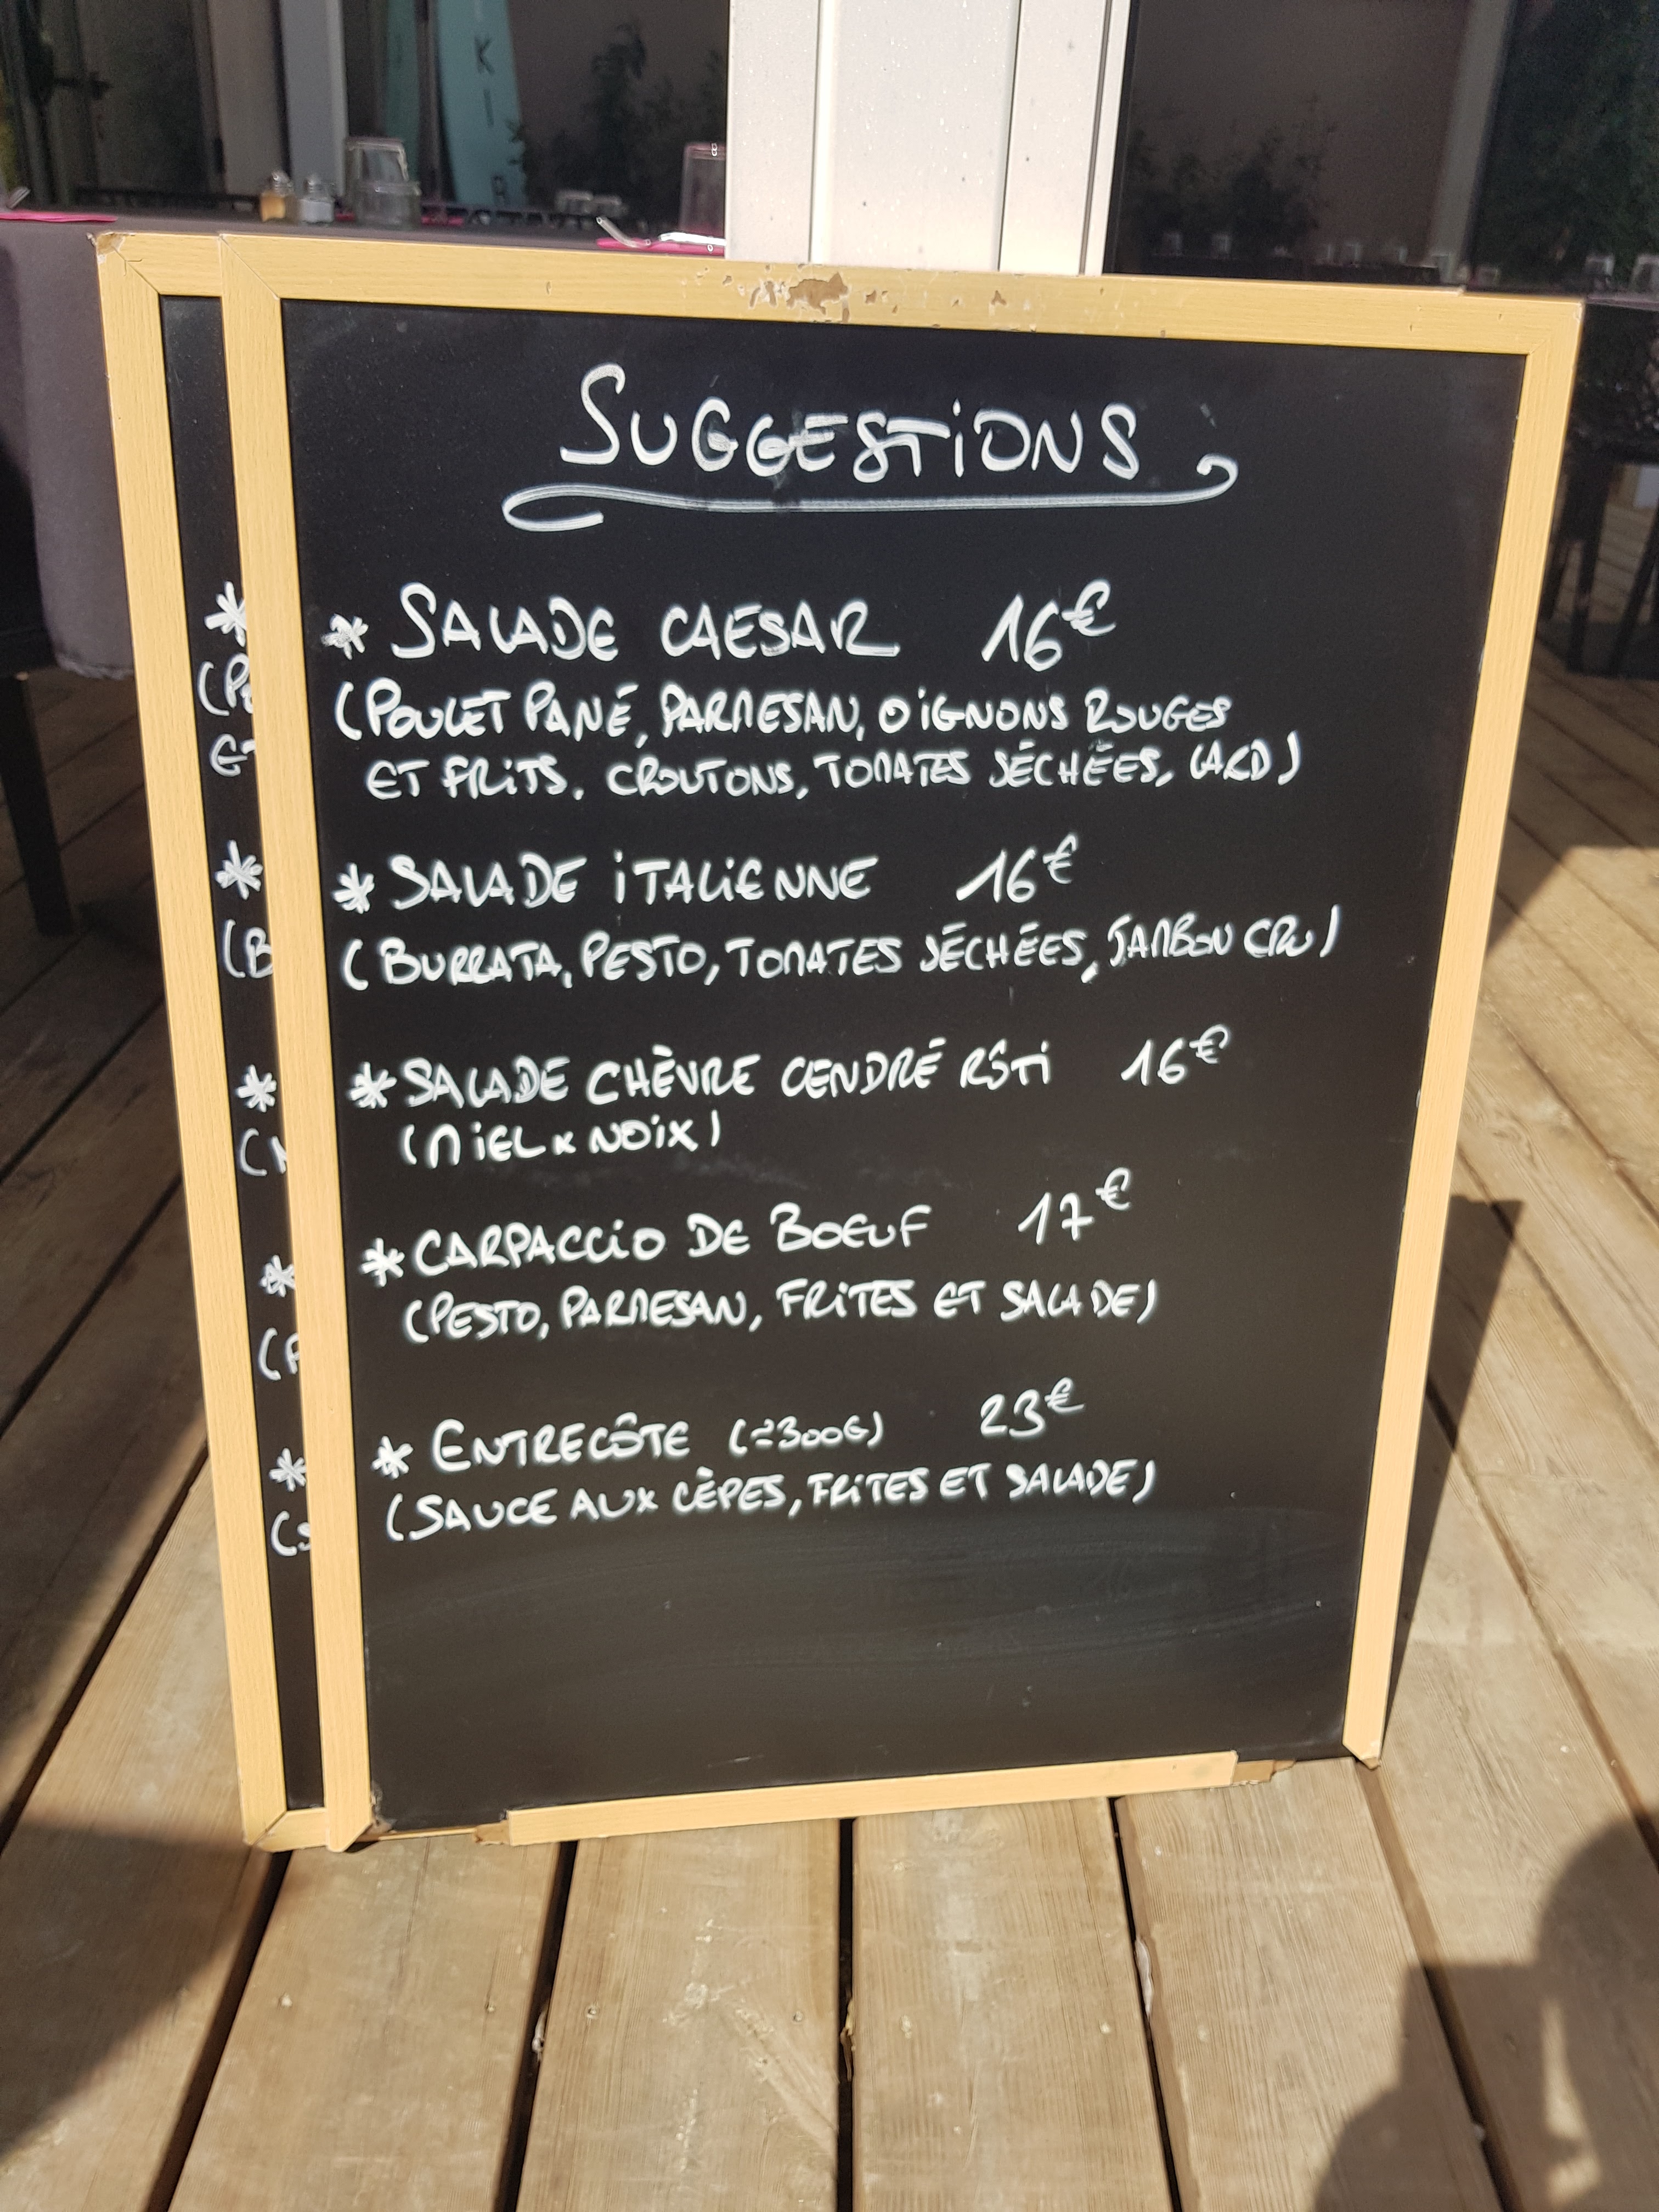 SUGGESTIONS
* SALADE CAESAR 16€
(POULET PANÉ, PARMESAN, OIGNONS ROUGES
ET FRITS, CROUTONS, TOMATES SÉCHÉES, LARD)
* SALADE ITALIENNE 16€
(BURRATA, PESTO, TOMATES SÉCHÉES, JAMBON CRU)
* SALADE CHÈVRE CENDRÉ RÔTI 16€
(MIEL & NOIX)
* CARPACCIO DE BOEUF 17€
(PESTO, PARMESAN, FRITES ET SALADE)
* ENTRECÔTE (≃300G) 23€
(SAUCE AUX CÈPES, FRITES ET SALADE)